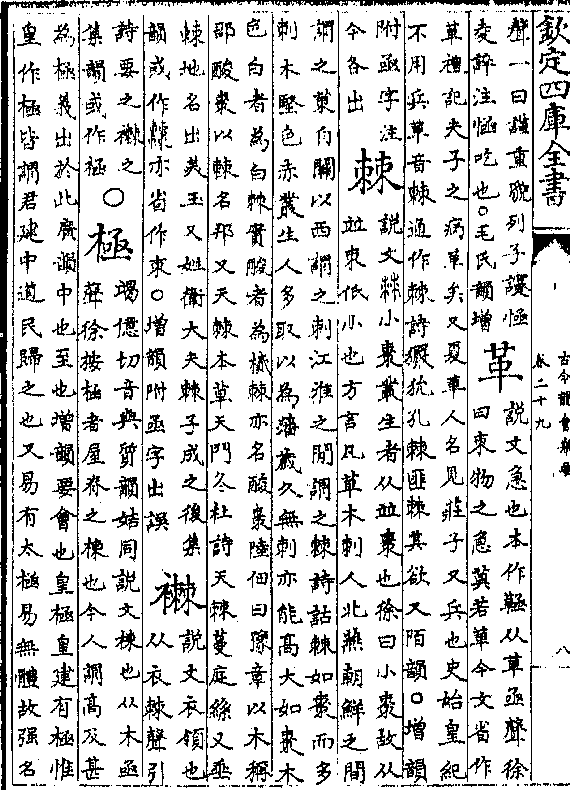 欽定四庫全書
古今韻會舉要
卷二十九
八
聲一曰謹重貌列子護㥛
夌誶注㥛吃也○毛氏韻增
革
說文急也本作𩍿从革亟聲徐
曰束物之急莫若革今文省作
革禮記夫子之病革矣又夏革人名見莊子又兵也史始皇紀
不用兵革音棘通作棘詩玁狁孔棘匪棘其欲又陌韻○增韻
附亟字注
今各出
棘
說文棘小棗叢生者从並朿也徐曰小棗故从
並朿低小也方言凡草木刺人北燕朝鮮之間
謂之茦自關以西謂之刺江淮之間謂之棘詩詁棘如棗而多
刺木堅色赤叢生人多取以為藩歲久無刺亦能高大如棗木
色白者為白棘實酸者為樲棘亦名酸棗陸佃曰豫章以木稱
郡酸棗以棘名邦又天棘本草天門冬杜詩天棘蔓庭絲又垂
棘地名出美玉又姓衛大夫棘子成之後集
韻或作亦省作朿○增韻附亟字出誤
襋
說文衣領也
从衣棘聲引
詩要之襋之
集韻或作
○極
竭億切音與質韻姞同說文棟也从木亟
聲徐按極者屋脊之棟也今人謂高及甚
為極義出於此廣韻中也至也增韻要會也皇極皇建有極惟
皇作極皆謂君建中道民歸之也又易有太極易無體故强名